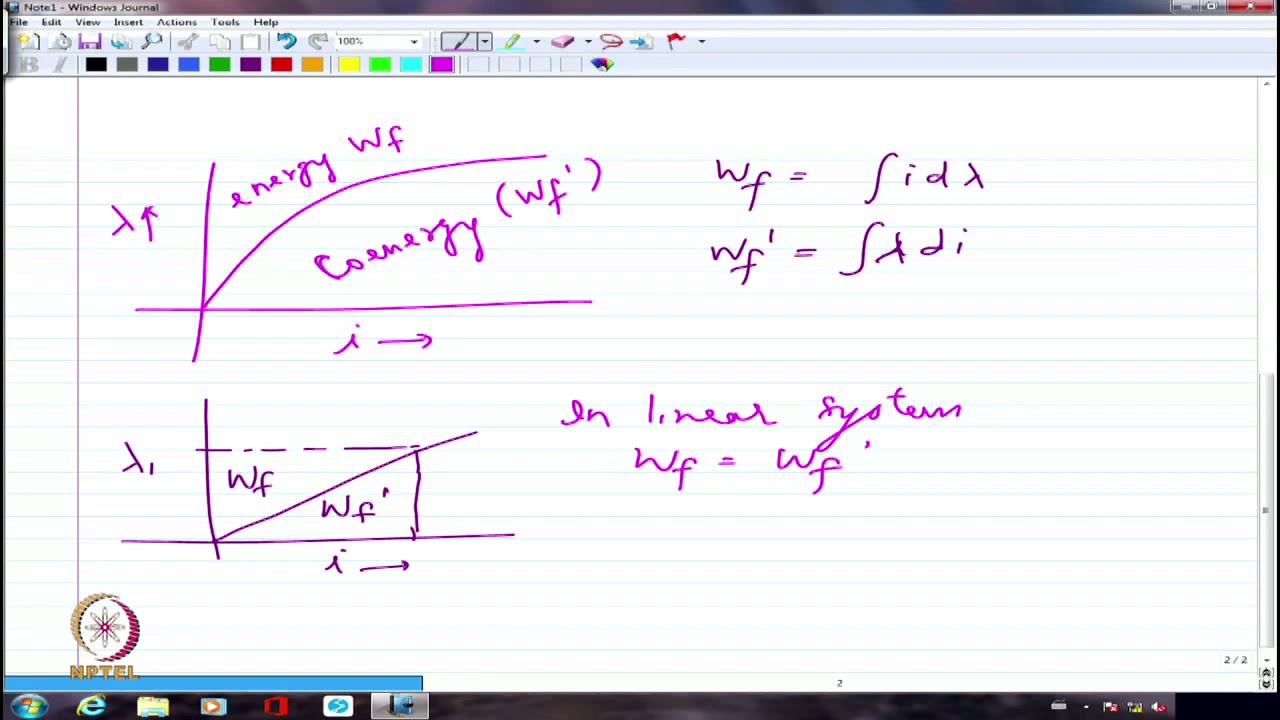 Note1 - Windows Journal
File Edit View Insert Actions Tools Help
100%
B I
energy Wf
λ↑
Coenergy (Wf')
i →
Wf = ∫ i d λ
Wf' = ∫ λ d i
λ1
Wf
Wf'
i →
In linear system
Wf = Wf'
NPTEL
2 / 2
2